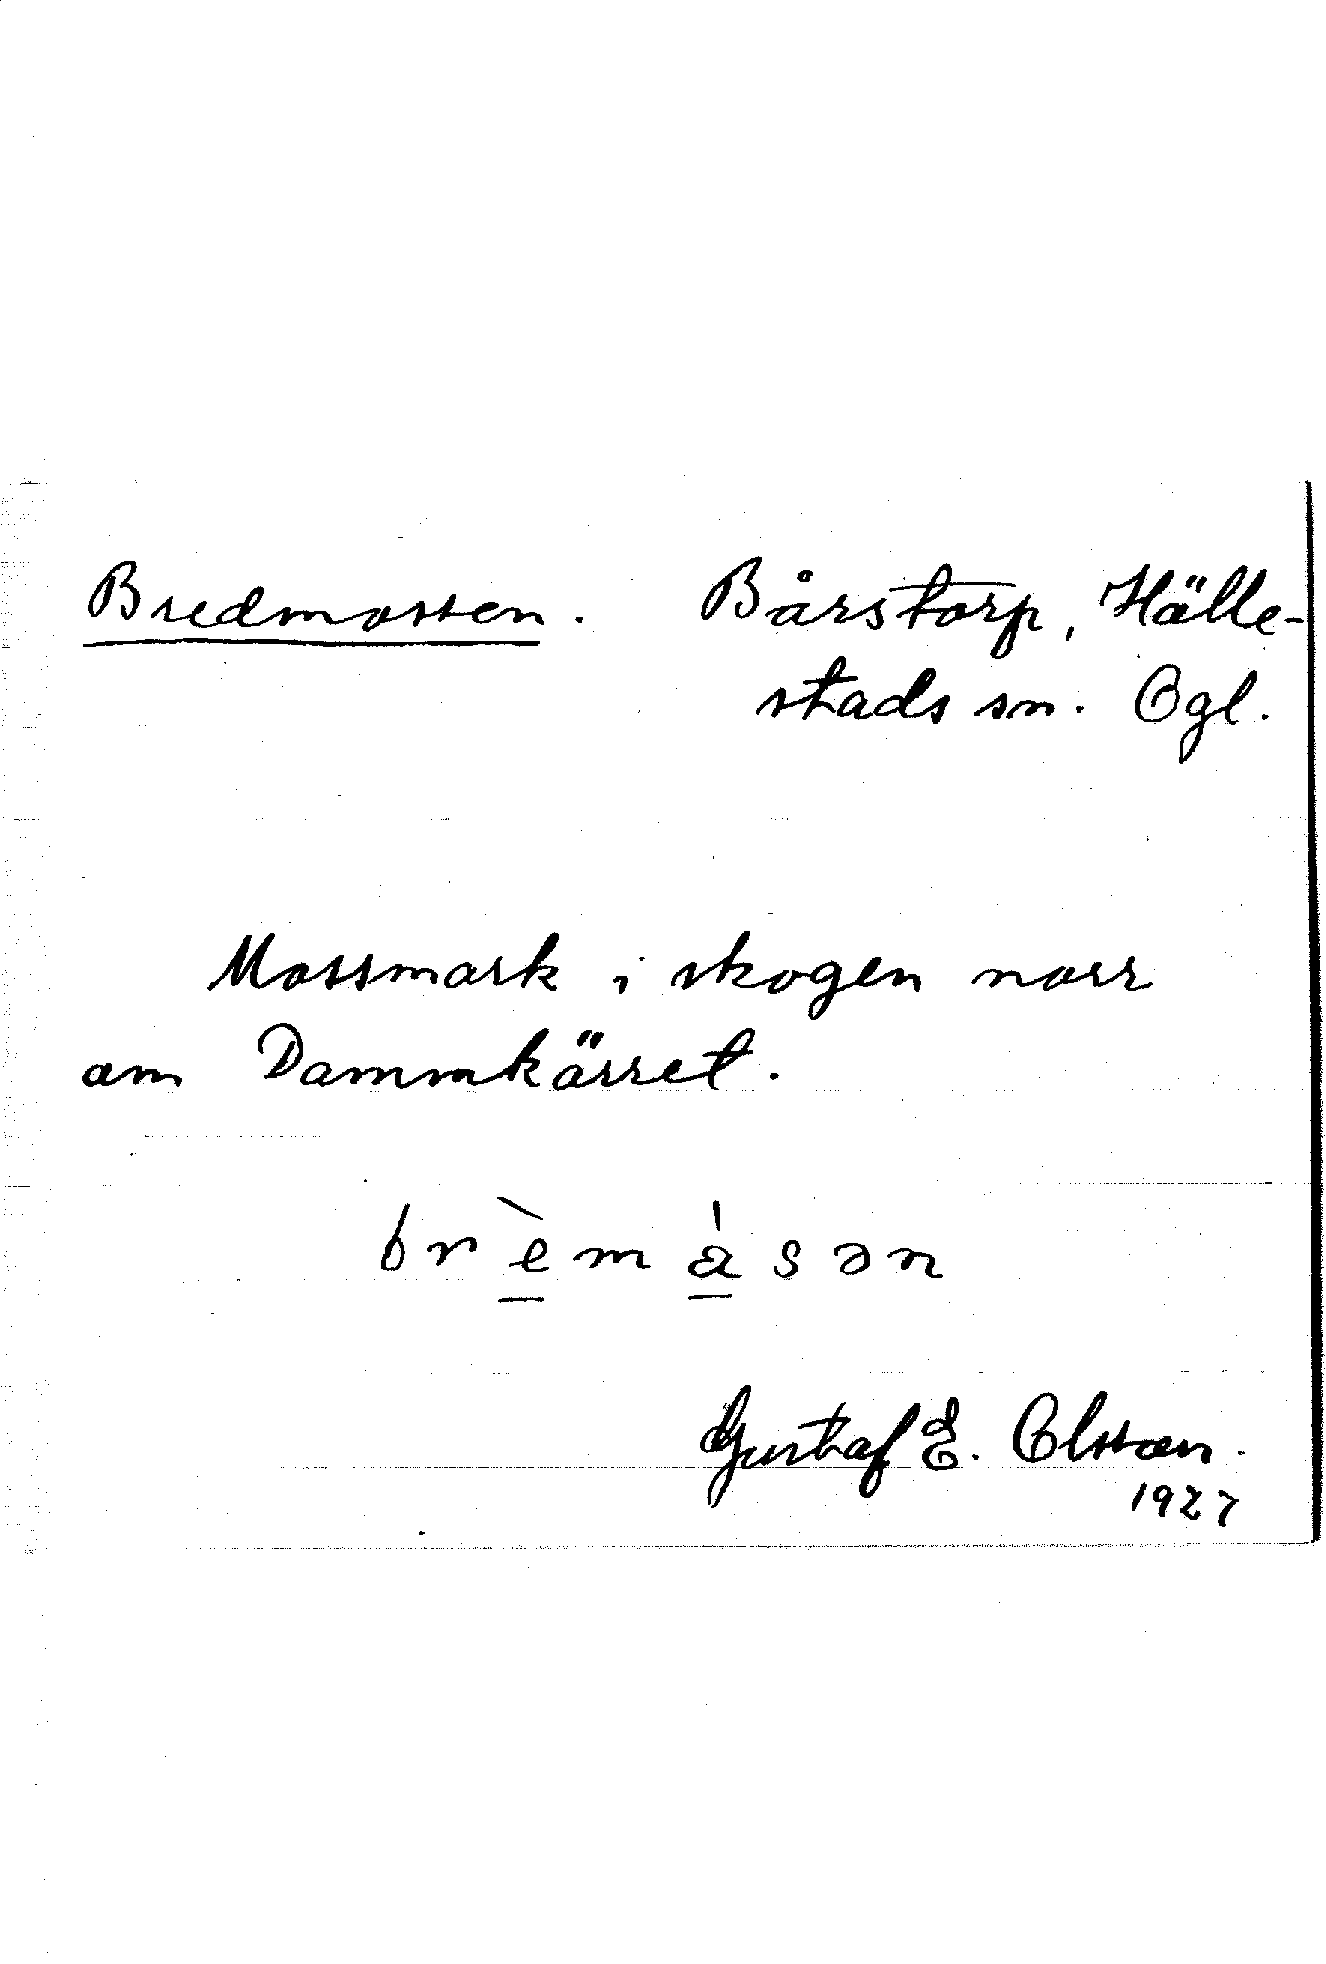 Bredmossen. Bårstorp, Hälle-
stads sn. Ögl.
Mossmark i skogen norr
om Dammkärret.
brèmåsən
Gustaf E. Olsson.
1927